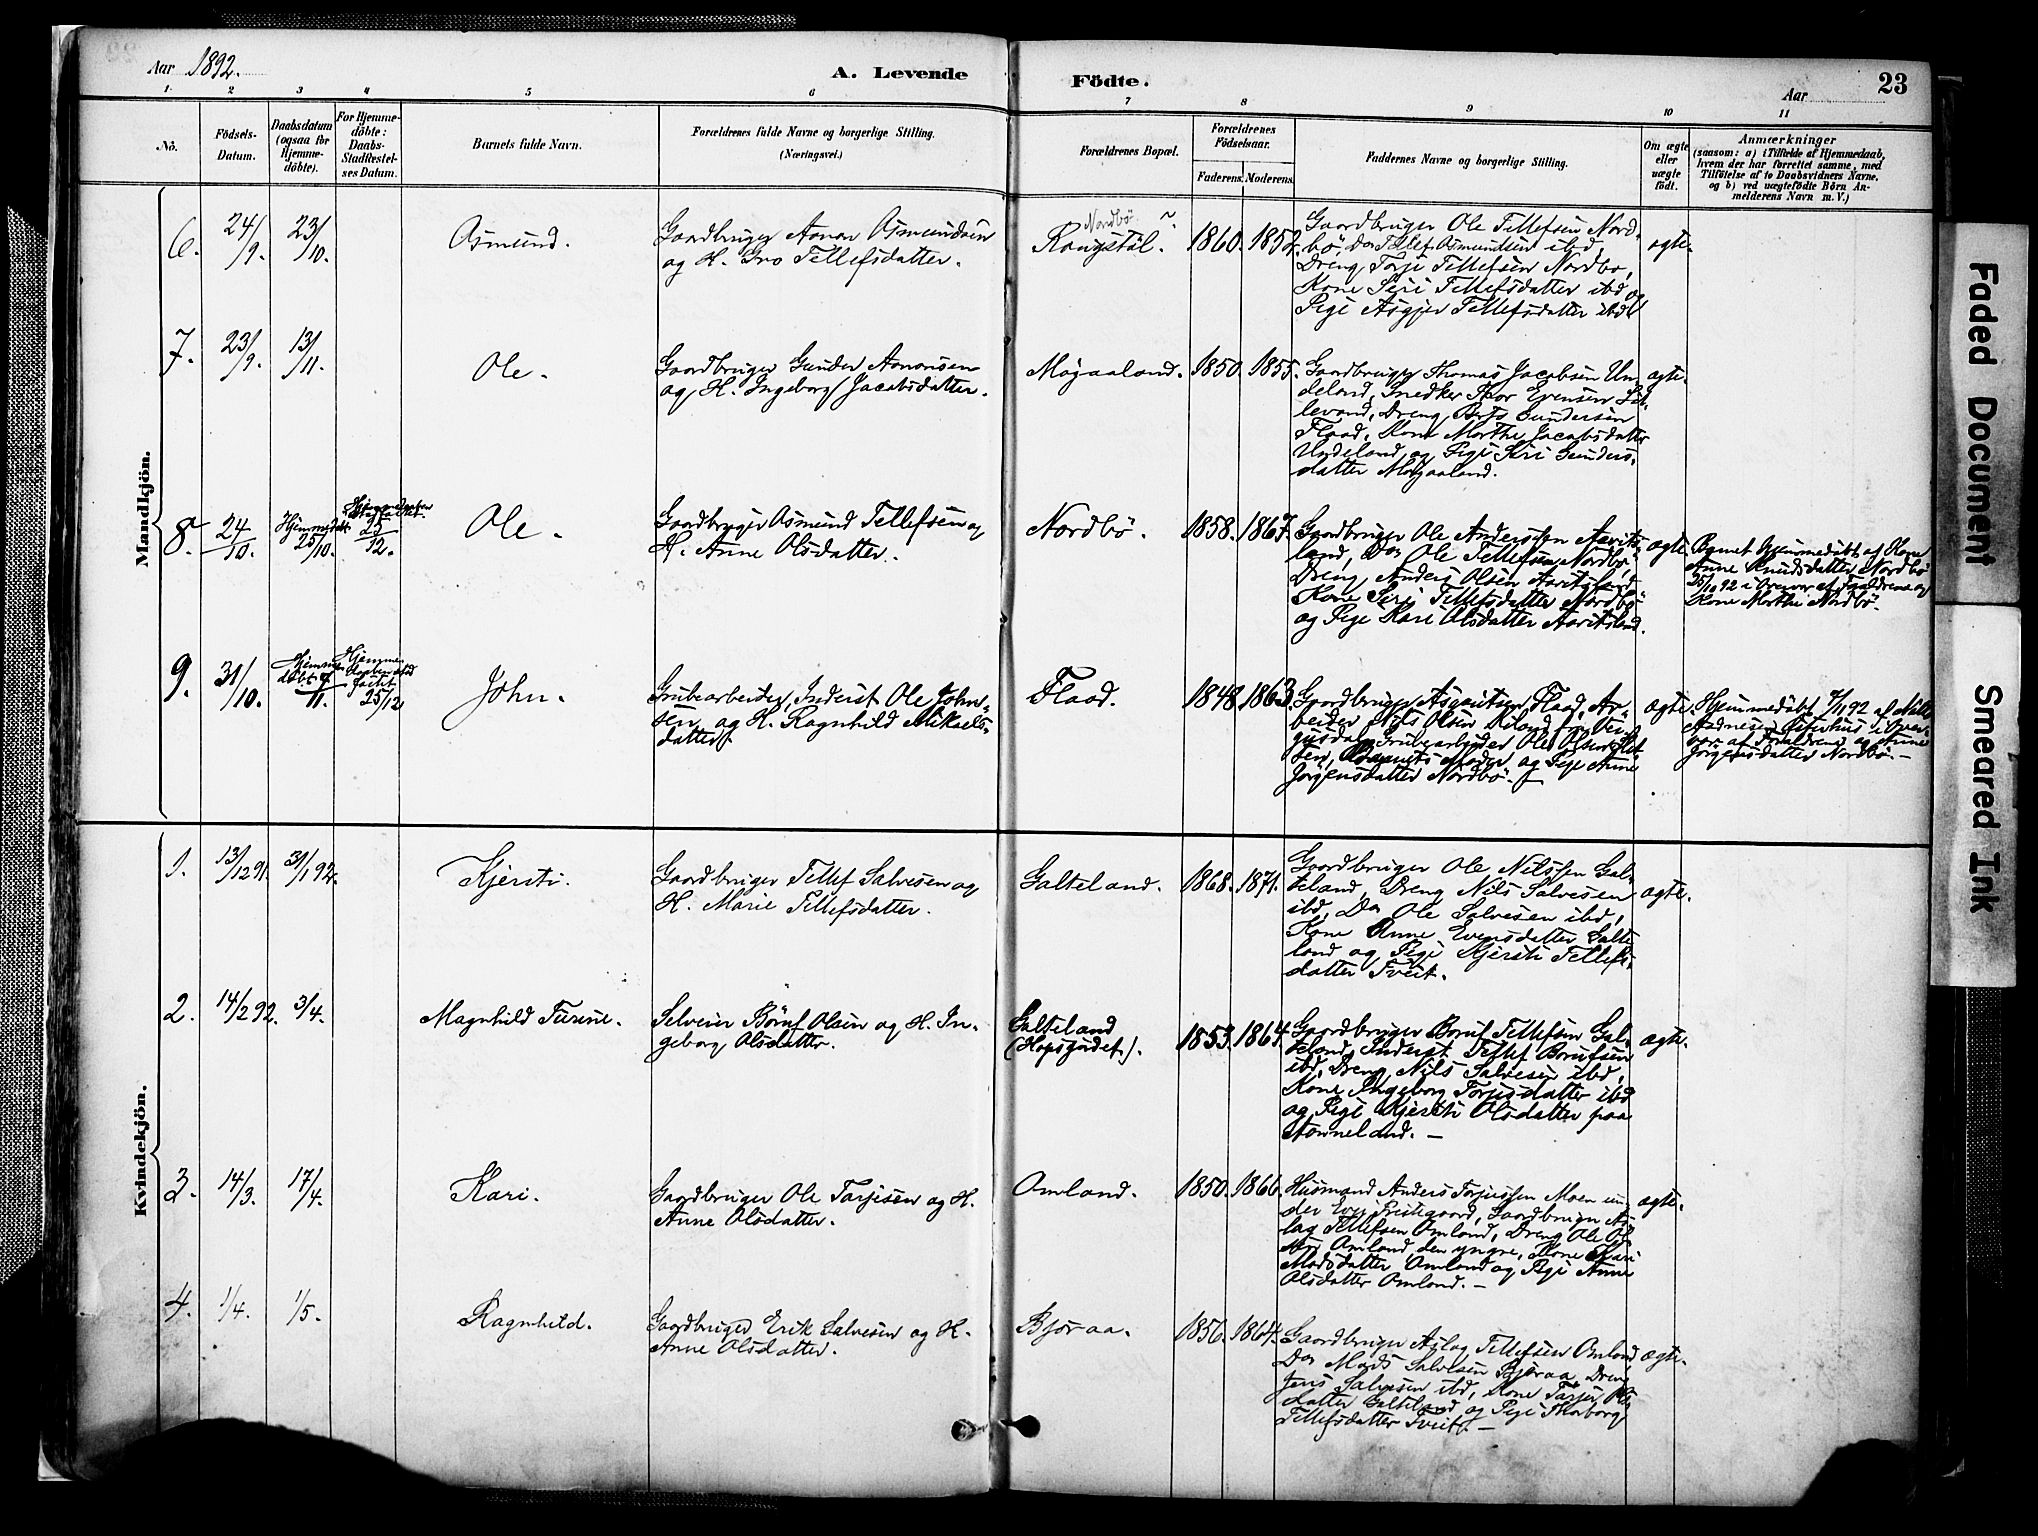 Aar 1892.
A. Levende Födte.
Aar
23
1 2 3 4 5 6 7 8 9 10 11
No.
Födsels-Datum.
Daabsdatum (ogsaa for Hjemme-döbte).
For Hjemme-döbte: Daabs-Stadfæstel-ses Datum.
Barnets fulde Navn.
Forældrenes fulde Navne og borgerlige Stilling.
(Næringsvei.)
Forældrenes Bopæl.
Forældrenes Födselsaar.
Faderens. Moderens.
Faddernes Navne og borgerlige Stilling.
Om ægte eller uægte födt.
Anmærkninger
(saasom: a) i Tilfælde af Hjemmedaab,
hvem der har forrettet samme, med
Tilföielse af to Daabsvidners Navne,
og b) ved uægtefödte Börn An-
melderens Navn m. V.)
Mandkjön.
6. 24/9. 23/10. Osmund.
Gaardbruger Aanon Osmundsen
og H. Gro Tellefsdatter.
Nordbö
1860. 1852.
Gaardbruger Ole Tellefsen Nord-
bö, Do Tellef Osmundsen ibd,
Dreng Torje Tellefsen Nordbo,
Kone Siri Tellefsdatter ibd og
Pige Asgjer Tellefsdatter ibd
ægte.
7. 23/9. 13/11. Ole.
Gaardbruger Gunder Aanonsen
og H. Ingeborg Jacobsdatter.
Mögaaland. 1850. 1855.
Gaardbruger Thomas Jacobsen Un-
deland, Snedker Thor Evensen
Dreng Gundersen
Flaad, Kone Marthe Jacobsdatter
Undeland og Pige Siri Gunders-
datter Mögaaland.
ægte.
8. 24/10. Hjemmedöbt 25/10. 25/12. Ole.
Gaardbruger Osmund Tellefsen og
H. Anne Olsdatter.
Nordbö. 1858. 1867.
Gaardbruger Ole Andersen Aarits-
land, Do Ole Tellefsen Nordbö,
Dreng Anders Olsen Aaritsland
Kone Siri Tellefsdatter Nordbö
og Pige Kari Olsdatter Aaritsland.
ægte.
Barnet hjemmedöbt af Kone
Anne Knudsdatter Nordbö
25/10 92 i Overvær af Forældrene og
Kone Marthe Nordbö.
9. 31/10. Hjemme-döbt /11. Hjemmedaaben stadfæstet 25/12 John.
Grubearbeider, Inderst Ole John-
sen og H. Ragnhild Mikaels-
datter.
Flaad. 1848. 1863.
Gaardbruger Flaad, Ar-
beider Nils Olsen
Grubearbeider Ole Olsen
Barnets Moder og Pige Anne
Jörgensdatter Nordbö.
ægte.
Hjemmedöbt /11 92 af
i Over-
vær af Forældrene og Anne
Jörgensdatter Nordbö. —
Kvindekjön.
1. 13/12 91. 31/1 92. Kjersti.
Gaardbruger Tellef Salvesen og
H. Marie Tellefsdatter.
Galteland. 1868. 1871.
Gaardbruger Ole Nilssen Gal-
teland, Dreng Nils Salvesen
ibd, Do Ole Salvesen ibd,
Kone Anne Evensdatter Galte-
land og Pige Kjersti Tellefs-
datter Tveit.
ægte.
2. 14/2 92. 3/4. Magnhild Turine.
Selveier Börüf Olsen og H. In-
geborg Olsdatter.
Galteland
1853. 1864.
Gaardbruger Borüf Tellefsen Gal-
teland, Inderst Tellef Borüfsen
ibd, Dreng Nils Salvesen ibd,
Kone Ingeborg Torjusdatter ibd
og Pige Kjersti Olsdatter paa
ægte.
3. 14/3. 17/4. Kari.
Gaardbruger Ole Tarjesen og H.
Anne Olsdatter.
Omland. 1850. 1866.
Husmand Anders Torjussen Moen un-
der Evje Præstegaard, Gaardbruger As-
lag Tellefsen Omland, Dreng Ole Ol-
sen Omland, den yngre, Kone Kari
Madsdatter Omland og Pige Anne
Olsdatter Omland. —
ægte.
4. 1/4. 1/5. Ragnhild.
Gaardbruger Erik Salvesen og H.
Anne Olsdatter.
Bjoraa. 1856. 1864.
Gaardbruger Aslag Tellefsen Omland
Do Mads Salvesen Bjoraa, Dreng
Jens Salvesen ibd, Kone
datter Galteland og Pige Thorborg
Tellefsdatter Tveit. —
ægte.
Faded Document
Smeared Ink